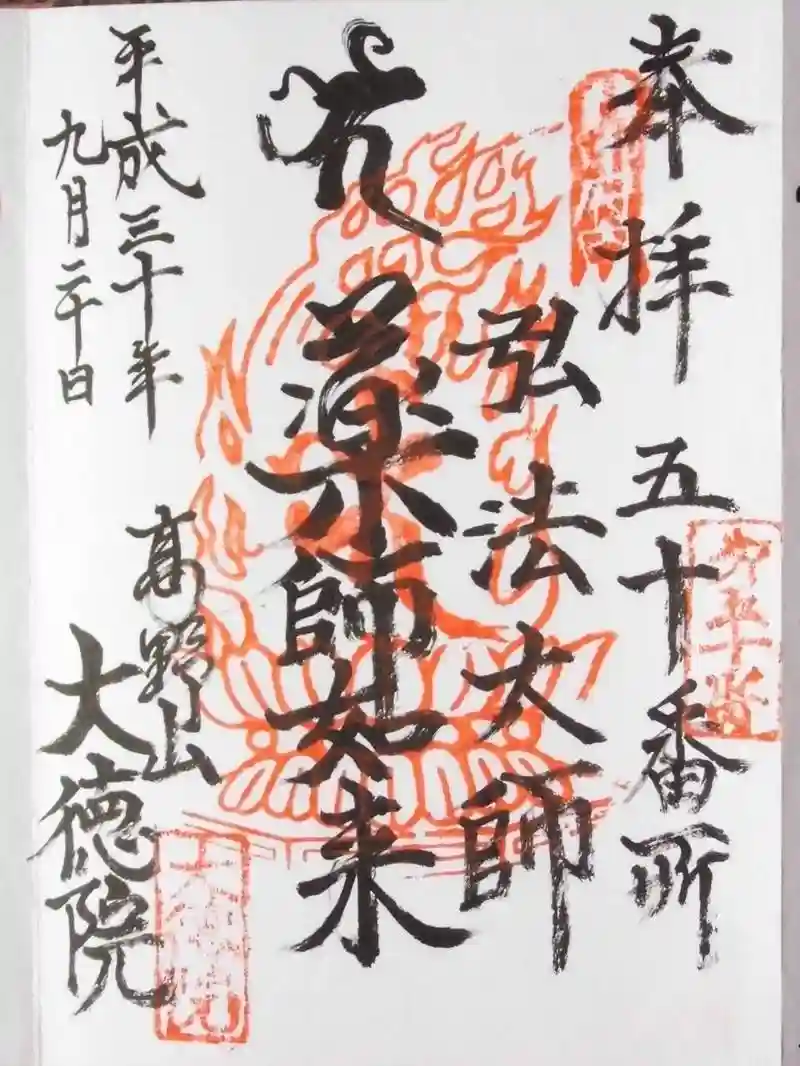 奉拝 五十番所
弘法大師
薬師如来
高野山
大徳院
平成三十年
九月二十日